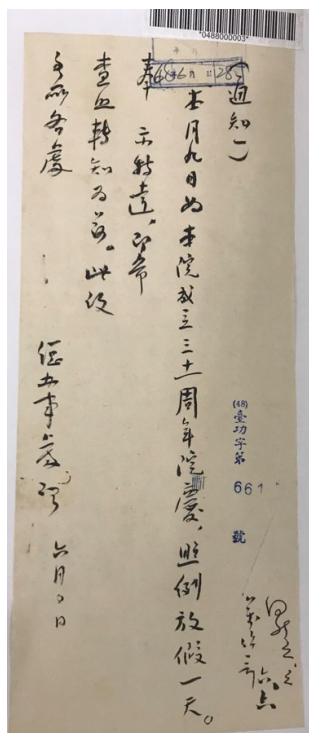 *0488000003*
（通知）
本月九日為本院成立三十一周年院慶，照例放假一天。
奉
示特達，即希
查照轉知為荷。此致
各所各處
總辦事處啟 六月 日
(48)臺功字第 661 號